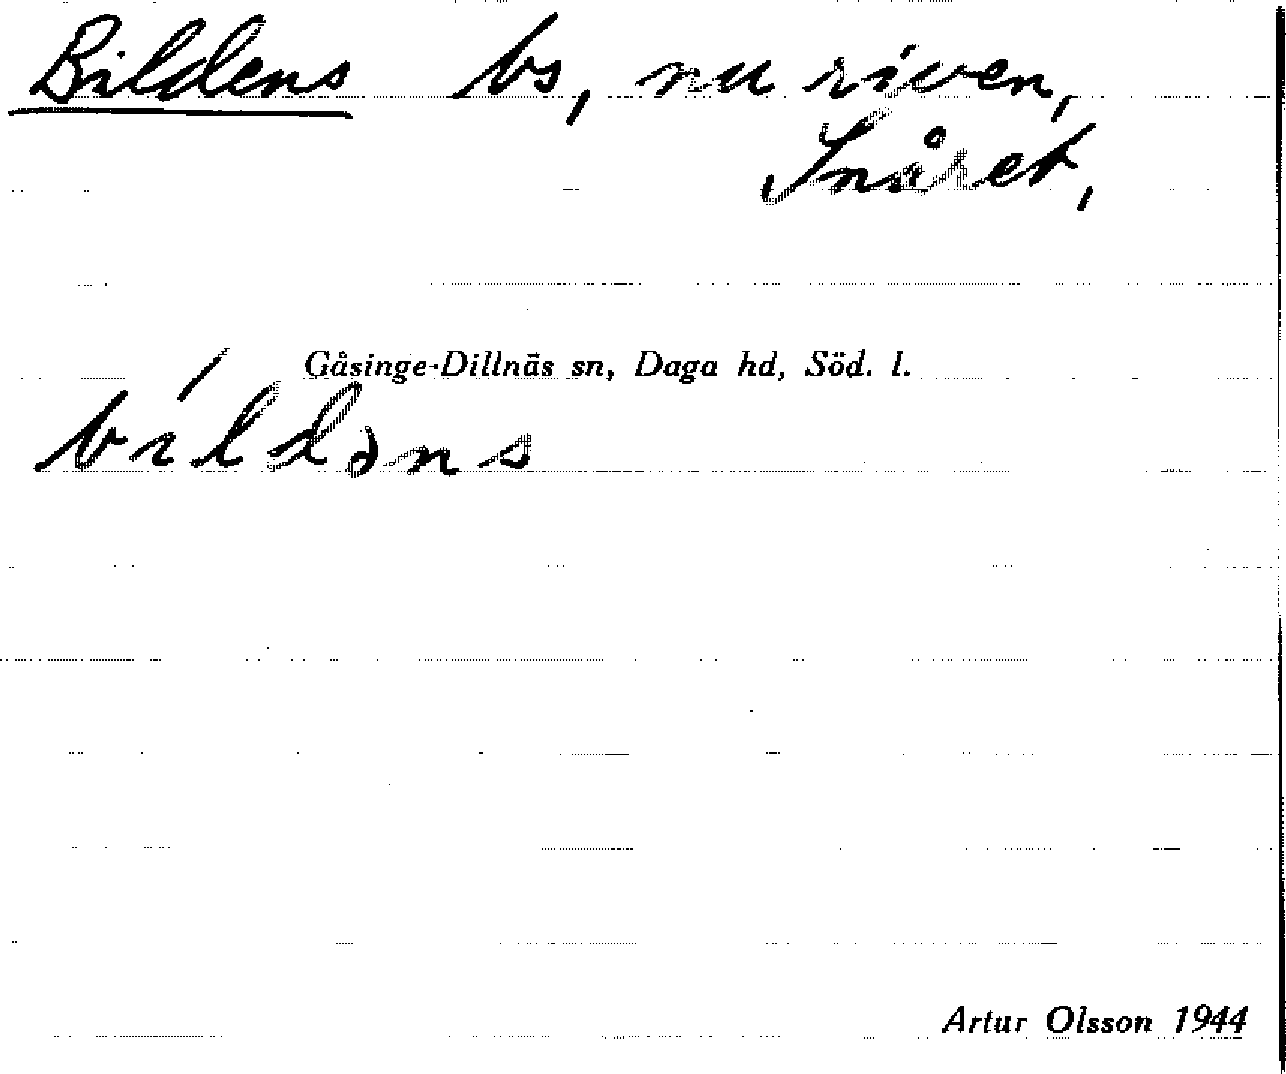 Bildens bs, nu riven,
Snåret,
Gåsinge-Dillnäs sn, Daga hd, Söd. l.
bíldəns
Artur Olsson 1944